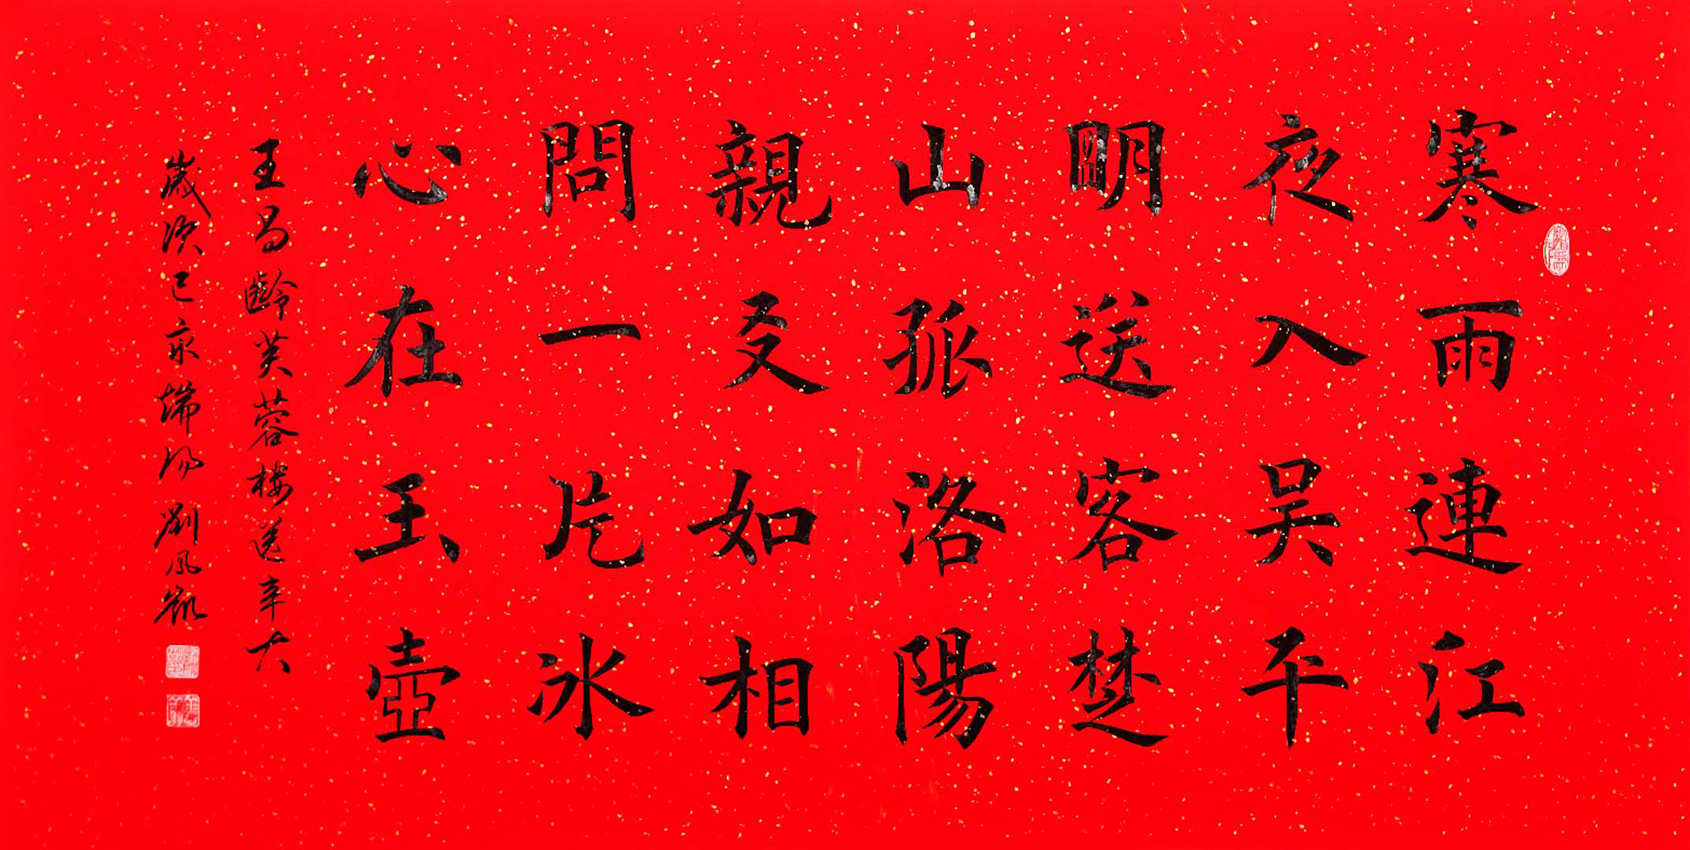 寒雨連江
夜入吴平
明送客楚
山孤洛陽
親友如相
問一片冰
心在玉壺
王昌齡芙蓉樓送辛大
歲次己亥端陽劉鳳凱